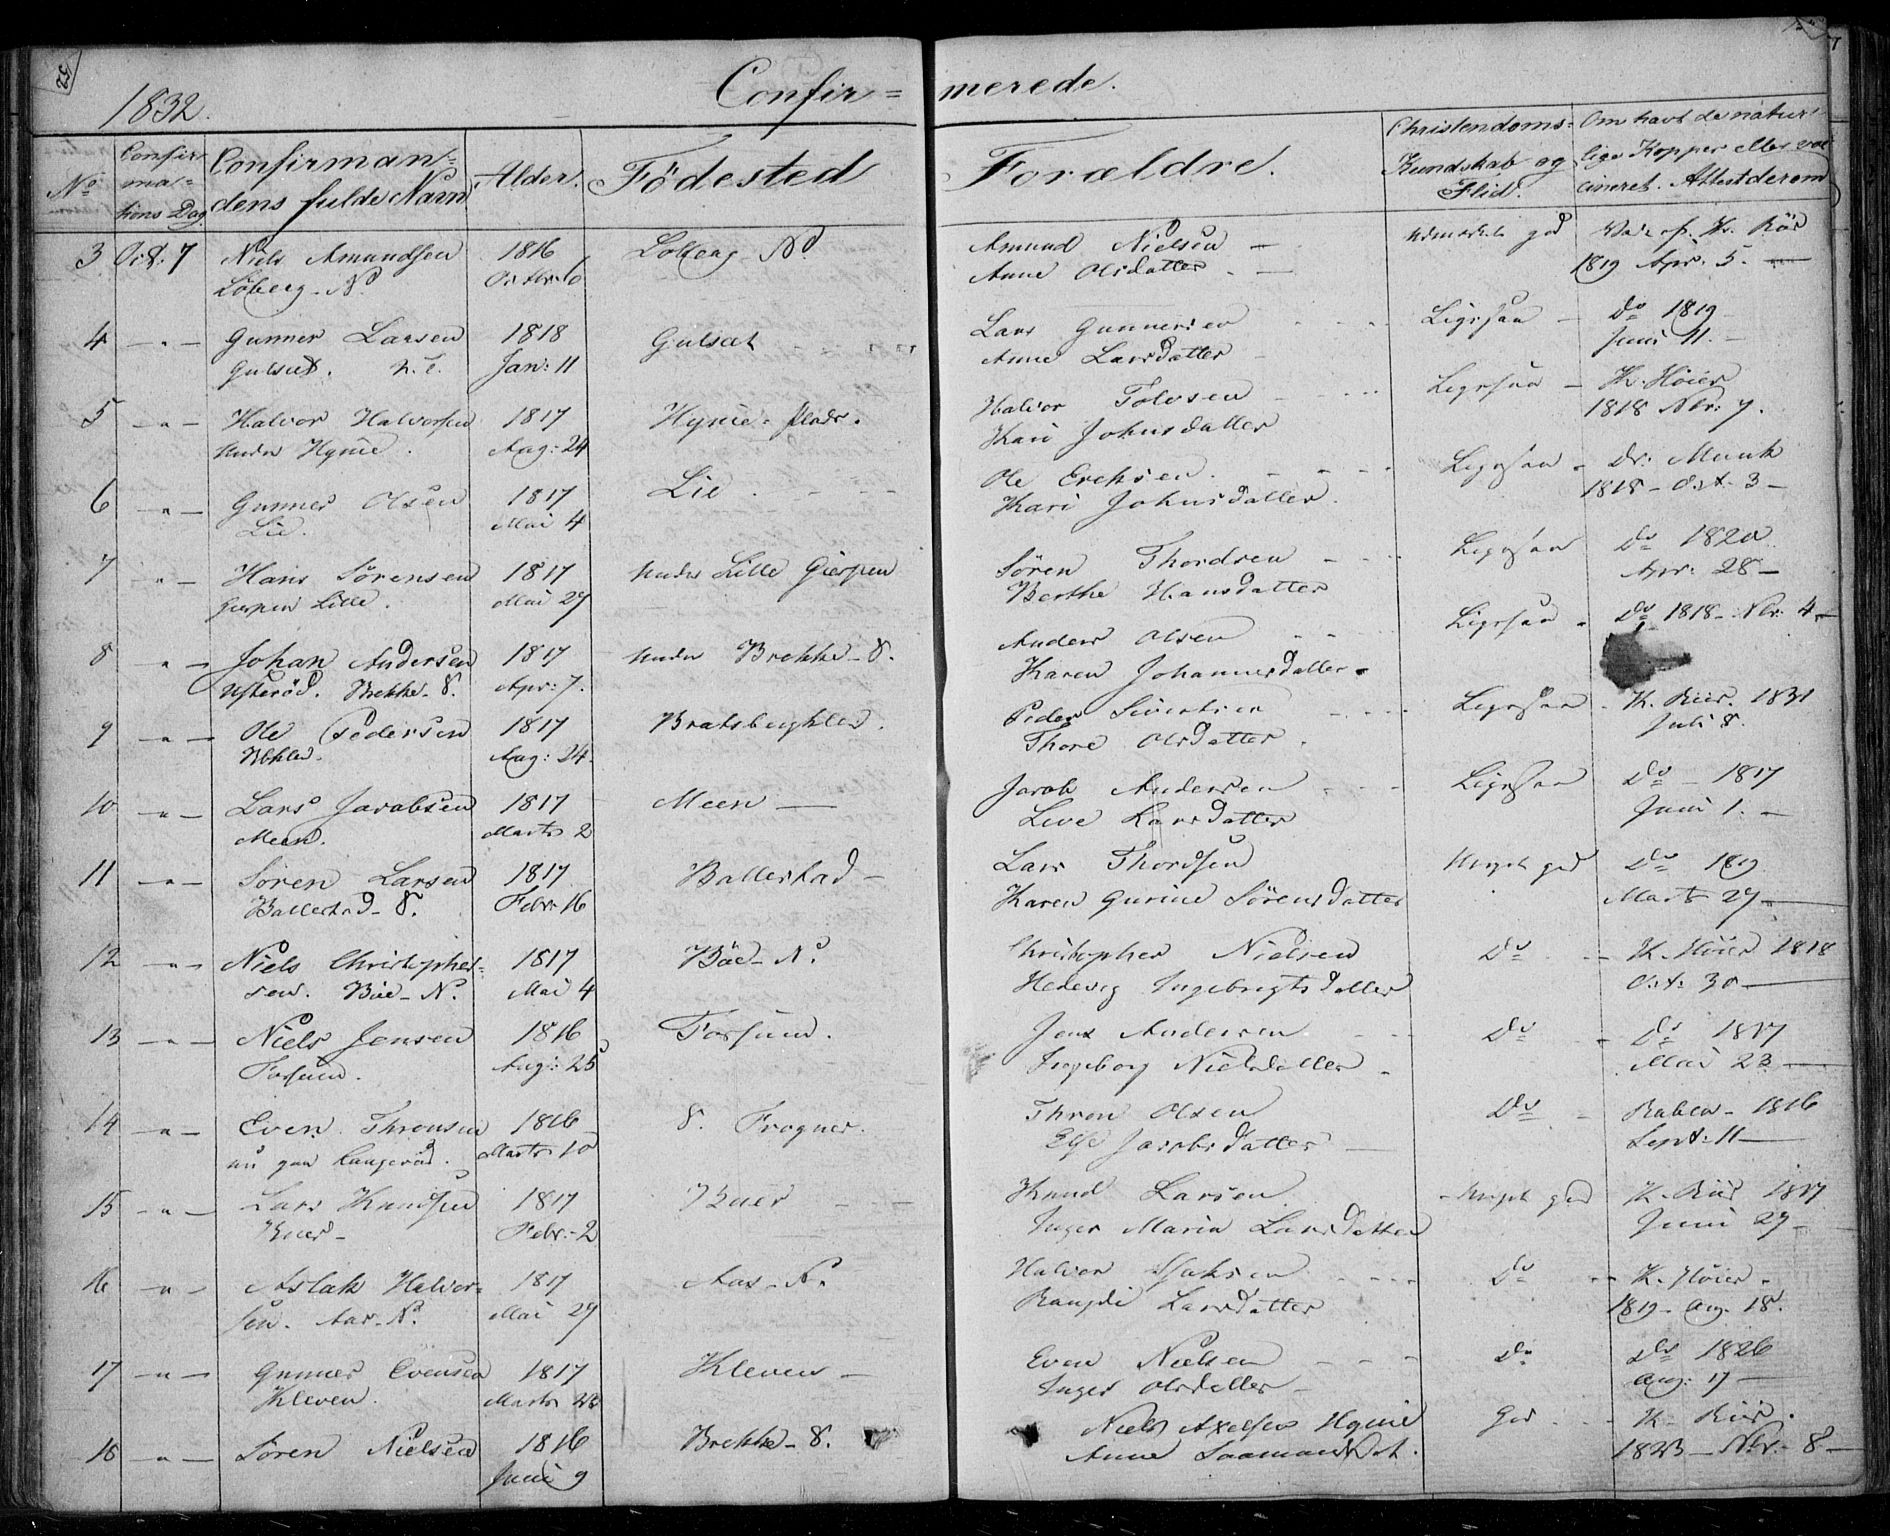 52
1832.
Confir= merede.
No
Confirmations Dag
Confirmandens fulde Navn
Alder.
Födested
Forældre.
Christendoms= Kundskab og Flid.
Om havt de naturlige Kopper eller vaccineret. Attest derom
3 Oct: 7 Niels Amundsen 1816 Löberg N. Amund Nielsen —
Löberg N. Octbr. 6 Anne Olsdatter — 1819 Apr. 5. —
4 —"— Gunner Larsen 1818 Gulset Lars Gunnersen Ligesaa — Do 1819
Gulset. Jan: 11 Anne Larsdatter Juni 11. —
5 —"— Halvor Halvorsen 1817 Hynie Plads. Halvor Tolvsen Ligesaa — H. Höier
under Hynie. Aug: 24 Kari Johnsdatter 1818 Nbr: 7.
6 —"— Gunner Olsen 1817 Lie Ole Erichsen Ligesaa Dr: Munk
Lie. Mai 4 Kari Johnsdatter. 1818 — Oct. 3 —
7 "— Hans Sörensen 1817 under Lille Gierpen Sören Thordsen Ligesaa Do 1820
Gierpen Lille. Mai 27 Berthe Hansdatter Apr: 28 —
8 "— Johan Andersen 1817 under Brekke S. Anders Olsen Ligesaa Do 1818 — Nbr: 4 —
Brekke S. Apr: 7. Karen Johannesdatter
9 —"— Ole Pedersen 1817 Bratsbergklev. Peder Sivertsen Ligesaa H. Riis. 1831
Aug: 24. Thore Olsdatter. Juli 8.
10 —"— Lars Jacobsen 1817 Meen — Jacob Andersen Ligesaa Do — 1817
Meen. Marts 2 Live Larsdatter Juni 1. —
11 —"— Sören Larsen 1817 Ballestad — Lars Thordsen Meget god Do 1819
Ballestad S. Febr. 16 Karen Gurine Sörensdatter Marts 27 —
12 —"— Niels Christopher= 1817 Böe N. Christopher Nielsen Do H. Höier 1818
sen. Böe N. Mai 4 Hedevig Ingebrigtsdatter Oct. 30 —
13 —"— Niels Jensen 1816 Fossum. Jens Andersen Do Do 1817
Fossum. Aug: 25 Ingeborg Nielsdatter Mai 23 —
14 —"— Even Thronsen 1816 S. Frogner. Thron Olsen Do Raben 1816
Marts 10 Else Jacobsdatter — Sept. 11 —
15 —"— Lars Knudsen 1817 Buer Knud Larsen Meget god H. Riis 1817
Buer — Febr. 2 Inger Maria Larsdatter Juni 27 —
16 —"— Aslak Halvor= 1817 Aas N. Halvor Do H. Höier
sen. Aas N. Mai 27 Larsdatter 1819 Aug. 18.
17 —"— Gunner Evensen 1817 Kleven — Even Nielsen Do Do 1826
Kleven. Marts 23 Inger Olsdatter — Aug: 17 —
18 —"— Sören Nielsen 1816 Brekke S. Niels Axelsen Hynie God H. Riis.
Juni 9 Anne 1823 — Nbr. 8 —